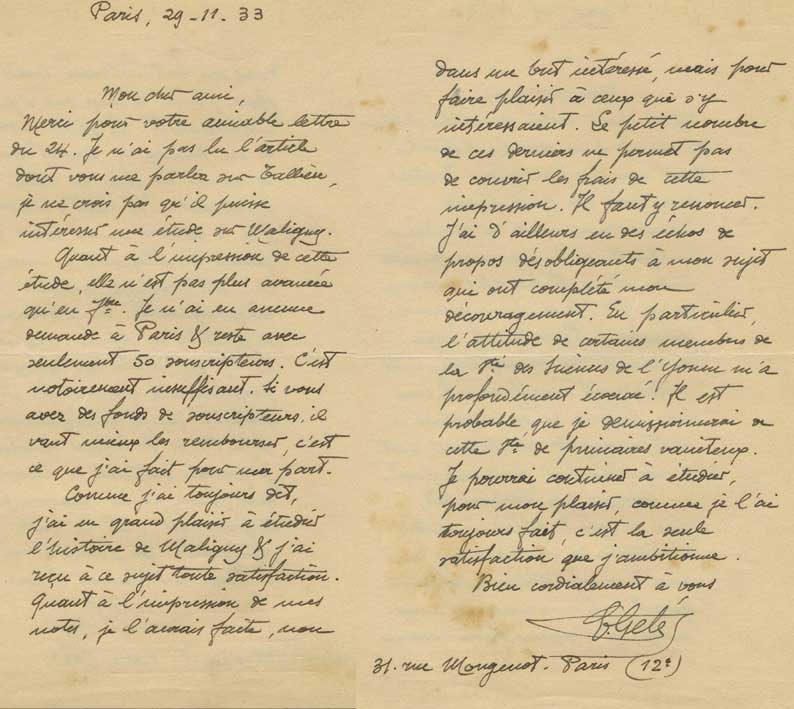 Paris, 29-11-33
Mon cher ami,
Merci pour votre aimable lettre
du 24. Je n'ai pas lu l'article
dont vous me parlez sur Tallien,
je ne crois pas qu'il puisse
intéresser une étude sur Maligny.
Quant à l'impression de cette
étude, elle n'est pas plus avancée
qu'en 7bre. Je n'ai eu aucune
demande à Paris & reste avec
seulement 50 souscripteurs. C'est
notoirement insuffisant. Si vous
avez des fonds de souscripteurs, il
vaut mieux les rembourser, c'est
ce que j'ai fait pour ma part.
Comme j'ai toujours dit,
j'ai un grand plaisir à étudier
l'histoire de Maligny & j'ai
reçu à ce sujet toute satisfaction.
Quant à l'impression de mes
notes, je l'aurais faite, non
dans un but intéressé, mais pour
faire plaisir à ceux que s'y
intéressaient. Le petit nombre
de ces derniers ne permet pas
de couvrir les frais de cette
impression. Il faut y renoncer.
J'ai d'ailleurs eu des échos de
propos désobligeants à mon sujet
qui ont complété mon
découragement. En particulier,
l'attitude de certains membres de
la Sté des Sciences de l'Yonne m'a
profondément écœuré. Il est
probable que je démissionnerai de
cette Sté de primaires vaniteux.
Je pourrai continuer à étudier,
pour mon plaisir, comme je l'ai
toujours fait, c'est la seule
satisfaction que j'ambitionne.
Bien cordialement à vous
31. rue Mongenot. Paris (12e)